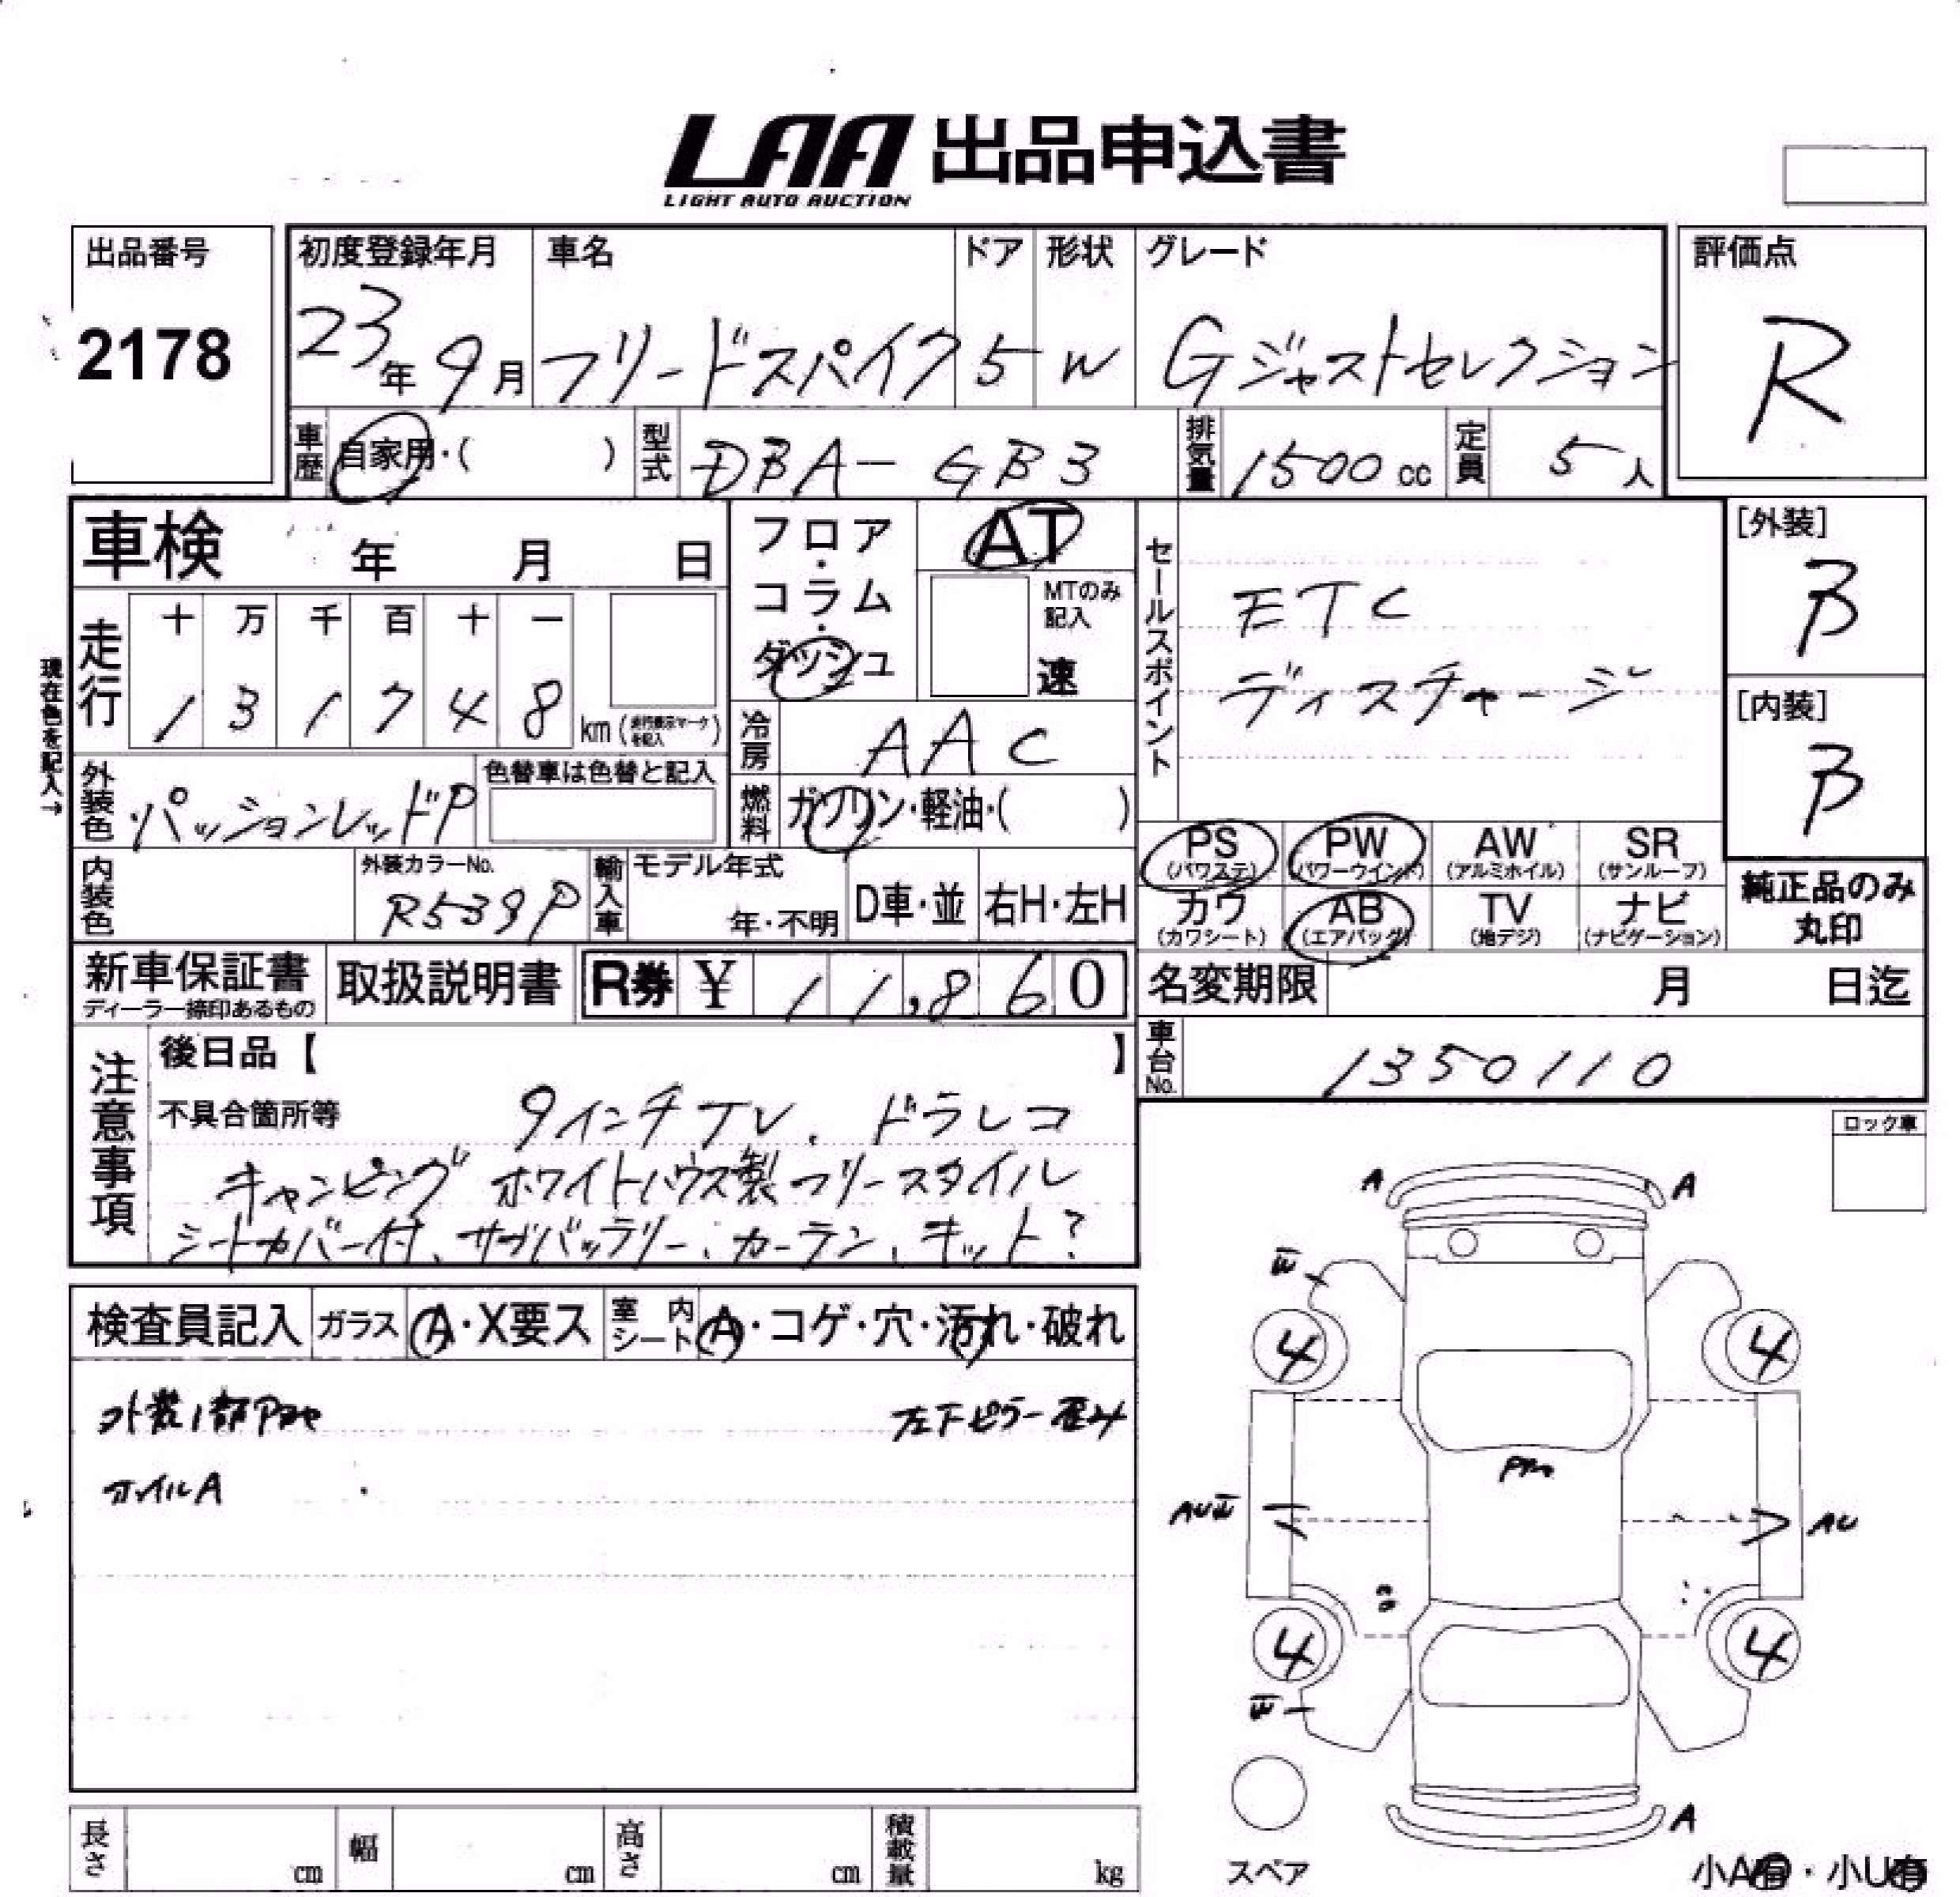 LAA 出品申込書
LIGHT AUTO AUCTION
出品番号
2178
初度登録年月
23年 9月
車名
フリードスパイク
ドア
5
形状
W
グレード
Gジャストセレクション
評価点
R
車歴 自家用・( )
型式 DBA-GB3
排気量 1500cc
定員 5人
車検 年 月 日
フロア・コラム・ダッシュ
AT
MTのみ記入
速
セールスポイント
ETC
ディスチャージ
[外装]
B
[内装]
B
現在色を記入→
走行
十 万 千 百 十 一
1 3 1 7 4 8 km (走行表示マークを記入)
冷房 AAC
外装色 パッションレッドP
色替車は色替と記入
燃料 ガソリン・軽油・( )
PS (パワステ) PW (パワーウインド) AW (アルミホイル) SR (サンルーフ)
カワ (カワシート) AB (エアバッグ) TV (地デジ) ナビ (ナビゲーション)
純正品のみ丸印
内装色
外装カラーNo.
R539P
輸入車
モデル年式
年・不明
D車・並
右H・左H
新車保証書
ディーラー捺印あるもの
取扱説明書
R券 ¥ 11,860
名変期限 月 日迄
車台No. 1350110
注意事項
後日品【 】
不具合箇所等 9インチTV、ドラレコ
キャンピング ホワイトハウス製フリースタイル
シートカバー付、サブバッテリー、カーテン、キット?
ロック車
検査員記入 ガラス A・X要ス 室内シート A・コゲ・穴・汚れ・破れ
左下ピラー歪み
ホイルA
A A
4 4
AU
4 4
A
スペア
長さ cm 幅 cm 高さ cm 積載量 kg
小A有・小U有